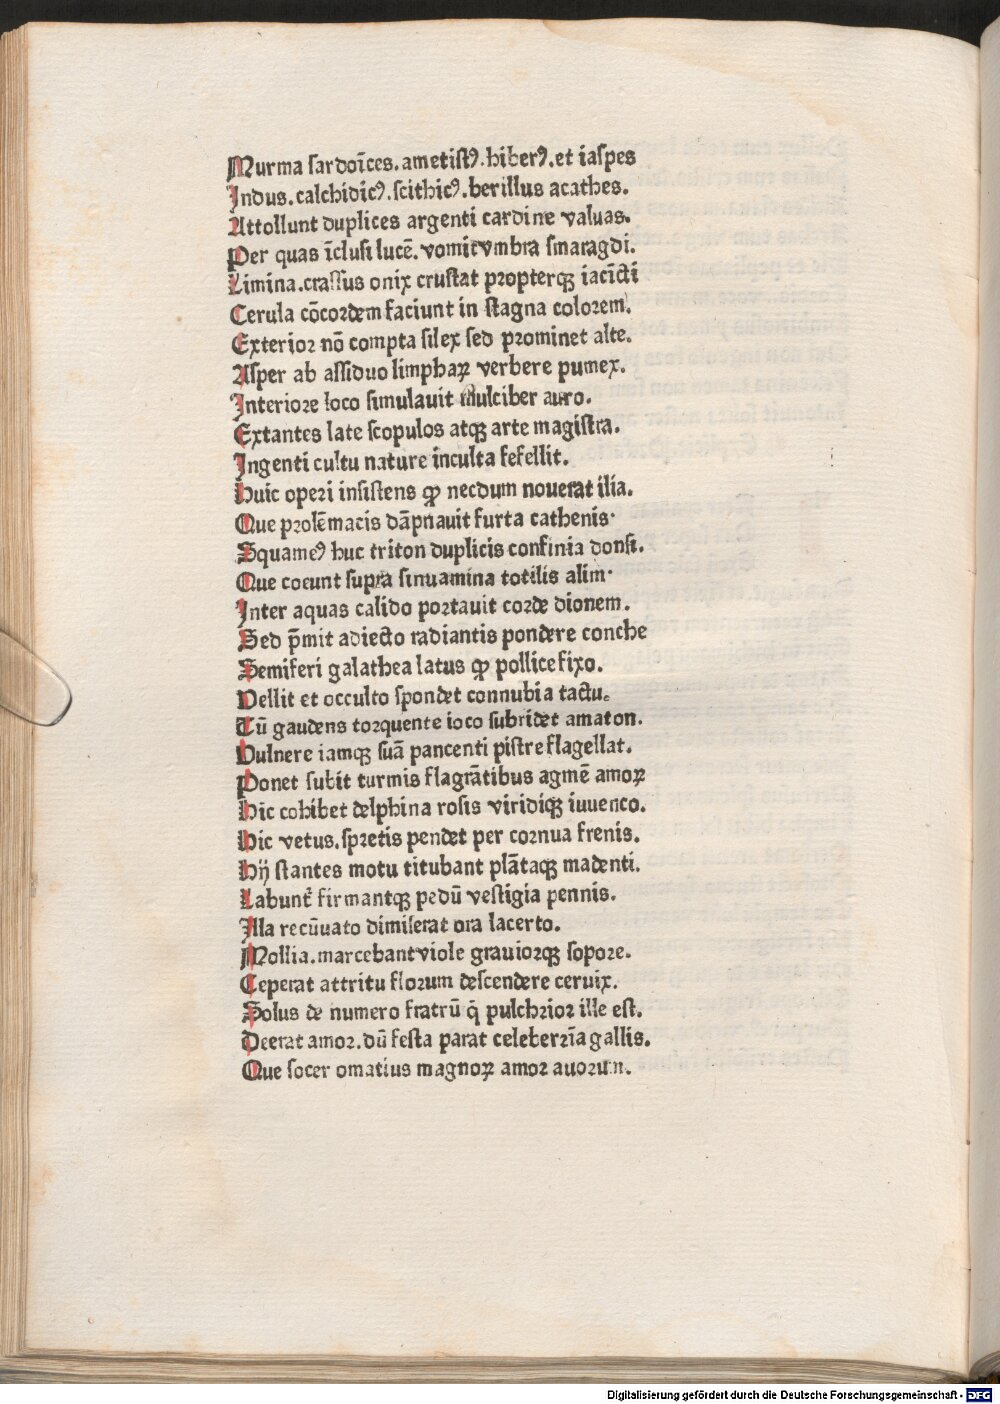 Murma sardoīces. ametistꝰ. hiberꝰ. et iaspes
Indus. calchidicꝰ. scithicꝰ. berillus acathes.
Attollunt duplices argenti cardine valuas.
Per quas īclusi lucē. vomit vmbra smaragdi.
Limina. crassus onix crustat propterqꝫ iacīcti
Cerula cōcordem faciunt in stagna colorem.
Exterior nō compta silex sed prominet alte.
Asper ab assiduo limphaꝝ verbere pumex.
Interiore loco simulauit mulciber auro.
Extantes late scopulos atqꝫ arte magistra.
Ingenti cultu nature inculta fefellit.
Huic operi insistens ꝙ necdum nouerat ilia.
Que prolēmacis dāpnauit furta cathenis.
Squameꝰ huc triton duplicis confinia donsi.
Que coeunt supra sinuamina totilis alim.
Inter aquas calido portauit corde dionem.
Sed p̄mit adiecto radiantis pondere conche
Semiferi galathea latus ꝙ pollice fixo.
Vellit et occulto spondet connubia tactu.
Tū gaudens torquente ioco subridet amaton.
Vulnere iamqꝫ suā pancenti pistre flagellat.
Ponet subit turmis flagrātibus agmē amoꝝ
Hic cohibet delphina rosis viridiqꝫ iuuenco.
Hic vetus. spretis pendet per cornua frenis.
Hij stantes motu titubant plātaqꝫ madenti.
Labunt᷑ firmantqꝫ pedū vestigia pennis.
Illa recūuato dimiserat ora lacerto.
Mollia. marcebant viole grauiorqꝫ sopore.
Ceperat attritu florum descendere ceruix.
Solus de numero fratrū q̄ pulchrior ille est.
Deerat amor. dū festa parat celeberrīa gallis.
Que socer omatius magnoꝝ amor auorum.
Digitalisierung gefördert durch die Deutsche Forschungsgemeinschaft - DFG